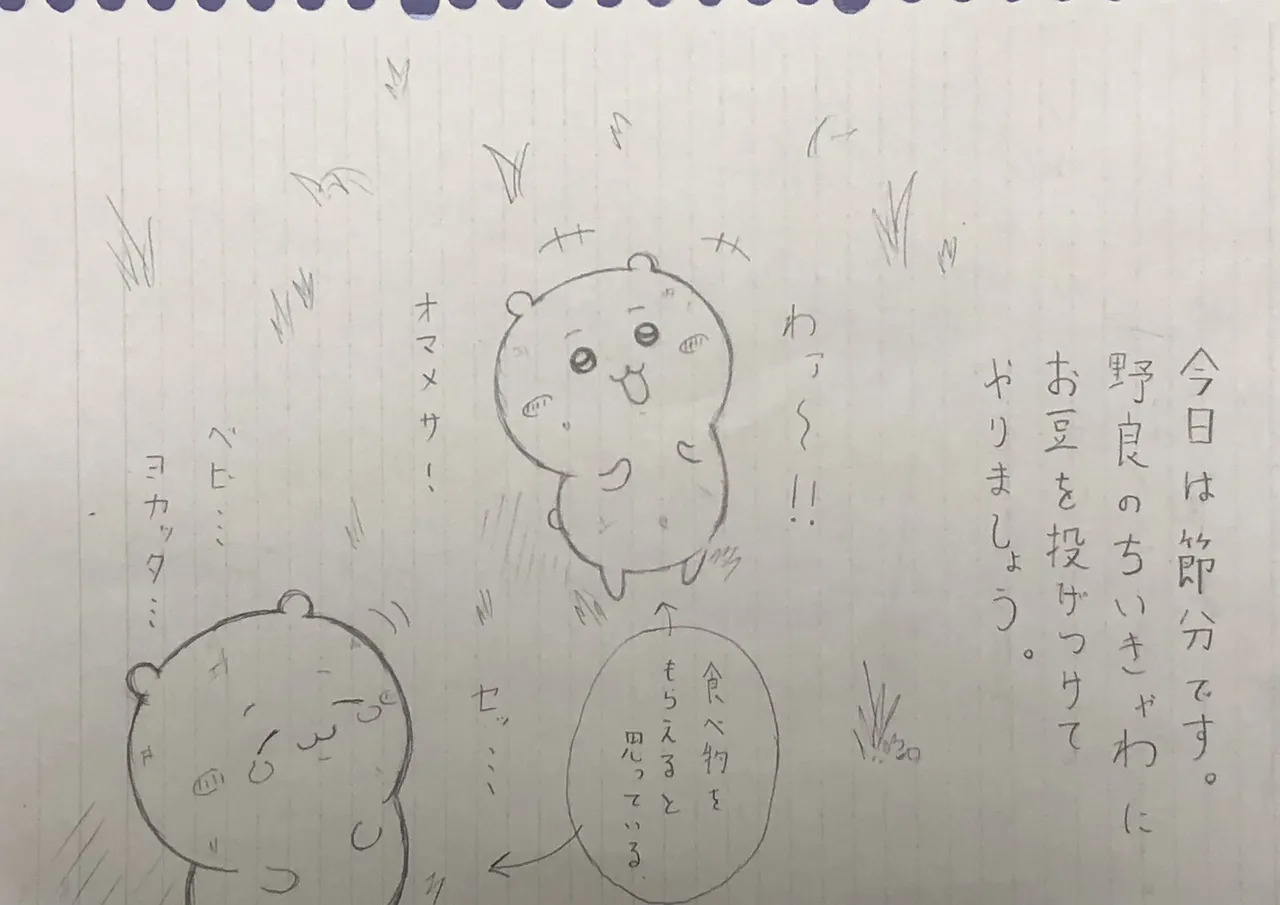 今日は節分です。
野良のちいきゃわに
お豆を投げつけて
やりましょう。
わァ〜!!
オマメサ!
食べ物を
もらえると
思っている
セッ……
ベビ……
ヨカッタ…